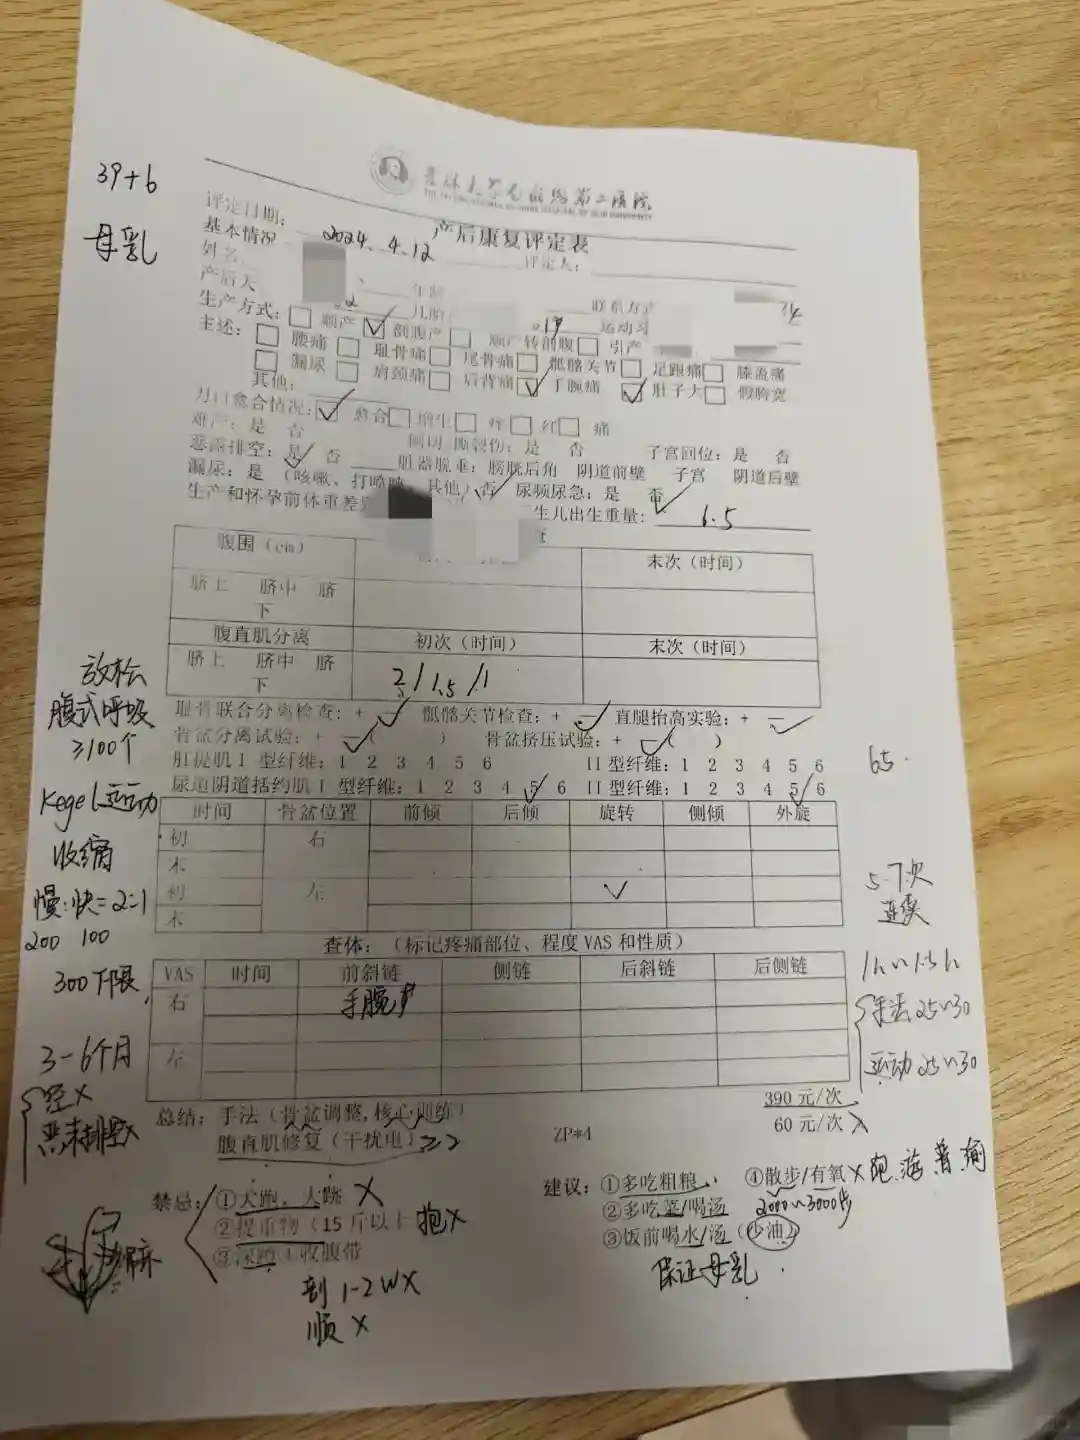 39+6
母乳
吉林大学白求恩第二医院
产后康复评定表
评定日期: 2024.4.12 评定人:
基本情况
姓名 年龄 联系方式
产后天 儿胎 运动习
生产方式: 顺产 剖腹产 顺产转剖腹 引产
主述: 腰痛 耻骨痛 尾骨痛 骶髂关节 足跟痛 膝盖痛
漏尿 肩颈痛 后背痛 手腕痛 肚子大 假胯宽
其他:
刀口愈合情况: 愈合 增生 痒 红 痛
难产: 是 否 侧切/撕裂伤: 是 否 子宫回位: 是 否
恶露排空: 是 否 脏器脱垂: 膀胱后角 阴道前壁 子宫 阴道后壁
漏尿: 是 (咳嗽、打喷嚏、其他) 否 尿频尿急: 是 否
生产和怀孕前体重差 生儿出生重量: 6.5
腹围 (cm) 末次 (时间)
脐上 脐中 脐下
腹直肌分离 初次 (时间) 末次 (时间)
脐上 脐中 脐下 2/1.5/1
耻骨联合分离检查: + - 骶髂关节检查: + - 直腿抬高实验: + -
骨盆分离试验: + - ( ) 骨盆挤压试验: + - ( )
肛提肌 I 型纤维: 1 2 3 4 5 6 II 型纤维: 1 2 3 4 5 6
尿道阴道括约肌 I 型纤维: 1 2 3 4 5 6 II 型纤维: 1 2 3 4 5 6
65
时间 骨盆位置 前倾 后倾 旋转 侧倾 外旋
初 右
末
初 左 ✓
末
查体: (标记疼痛部位、程度 VAS 和性质)
VAS 时间 前斜链 侧链 后斜链 后侧链
右 手腕
左
放松
腹式呼吸
≥100个
Kegel 运动
收缩
慢:快=2:1
200 100
300下限
3-6个月
经×
恶未排空×
5-7次
连续
1h~1.5h
手法 25~30
运动 25~30
总结: 手法 (骨盆调整,核心训练) 390 元/次
腹直肌修复 (干扰电) ≥2 ZP*4 60 元/次
禁忌: ①大跑、大跳 ×
②提重物 (15 斤以上 抱×
③深蹲+收腹带
剖 1-2W×
顺 ×
麻
建议: ①多吃粗粮 ④散步/有氧× 跑 游 普 瑜
②多吃菜/喝汤 2000~3000步
③饭前喝水/汤 (少油)
保证母乳